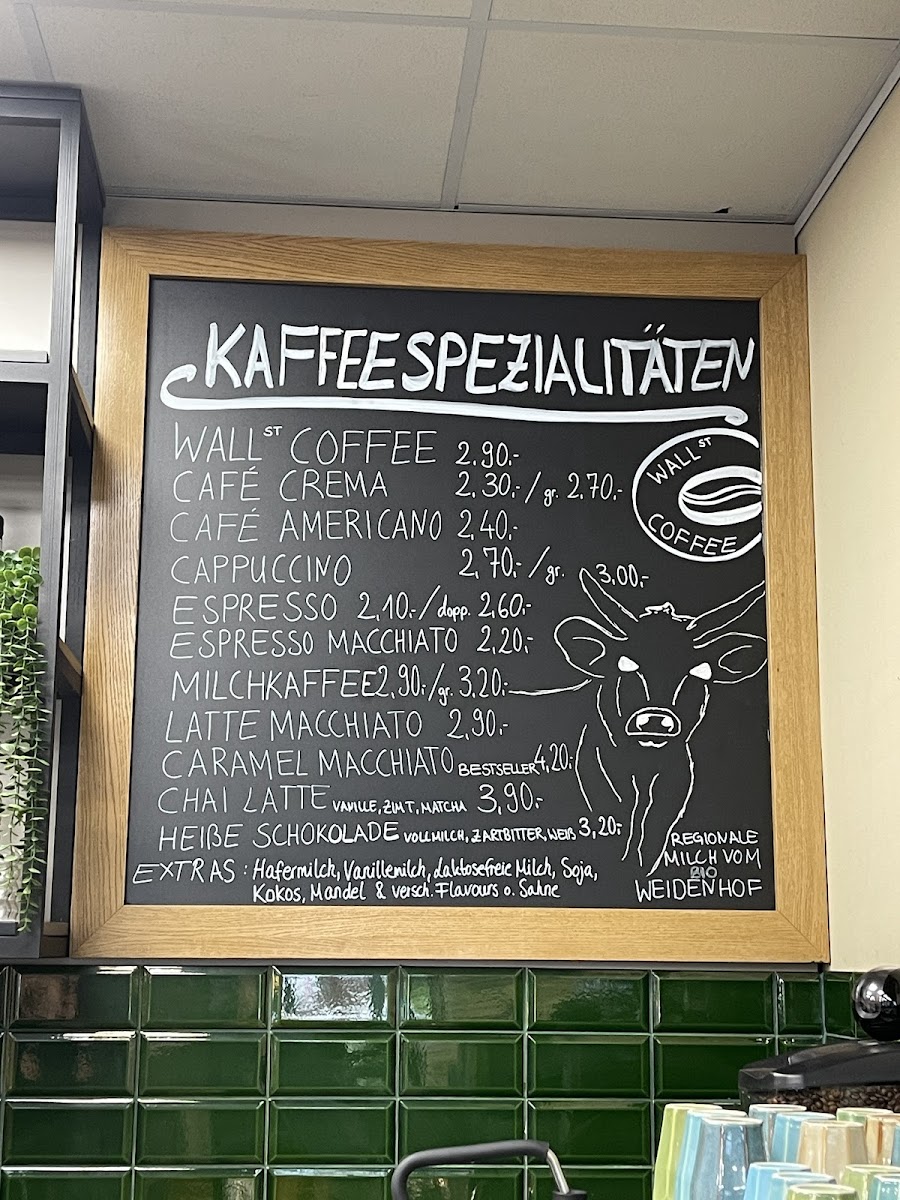 KAFFEESPEZIALITÄTEN
WALL ST COFFEE 2.90.-
CAFÉ CREMA 2.30.-/gr. 2.70.-
CAFÉ AMERICANO 2,40.-
CAPPUCCINO 2,70.-/gr. 3,00.-
ESPRESSO 2.10.-/dopp. 2,60.-
ESPRESSO MACCHIATO 2,20.-
MILCHKAFFEE 2,90.-/gr. 3.20.-
LATTE MACCHIATO 2,90.-
CARAMEL MACCHIATO BESTSELLER 4,20.-
CHAI LATTE VANILLE, ZIMT, MATCHA 3,90.-
HEIẞE SCHOKOLADE VOLLMILCH, ZARTBITTER, WEIß 3,20.-
EXTRAS : Hafermilch, Vanillemilch, Laktosefreie Milch, Soja,
Kokos, Mandel & versch. Flavours o. Sahne
WALL ST
COFFEE
REGIONALE
MILCH VOM
BIO
WEIDENHOF